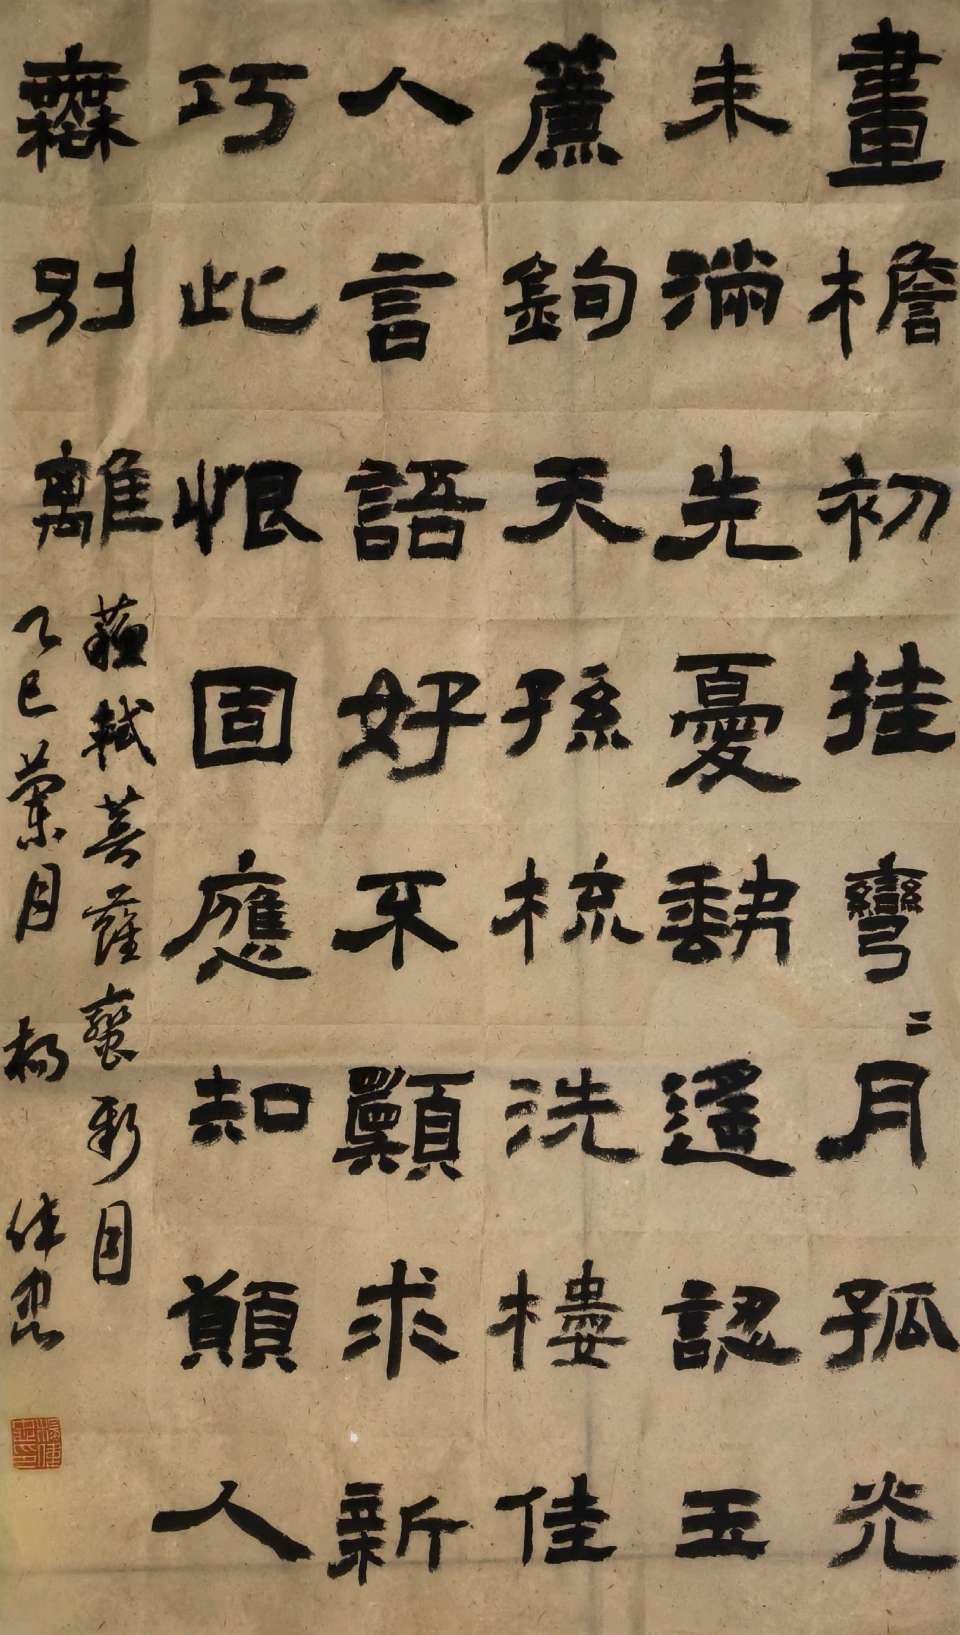 畫檐初挂彎〻月孤光
未滿先憂缺遙認玉
簾鉤天孫梳洗樓佳
人言語好不願求新
巧此恨固應知願人
無別離
蘇軾菩薩蠻新月
乙巳蘭月 楊